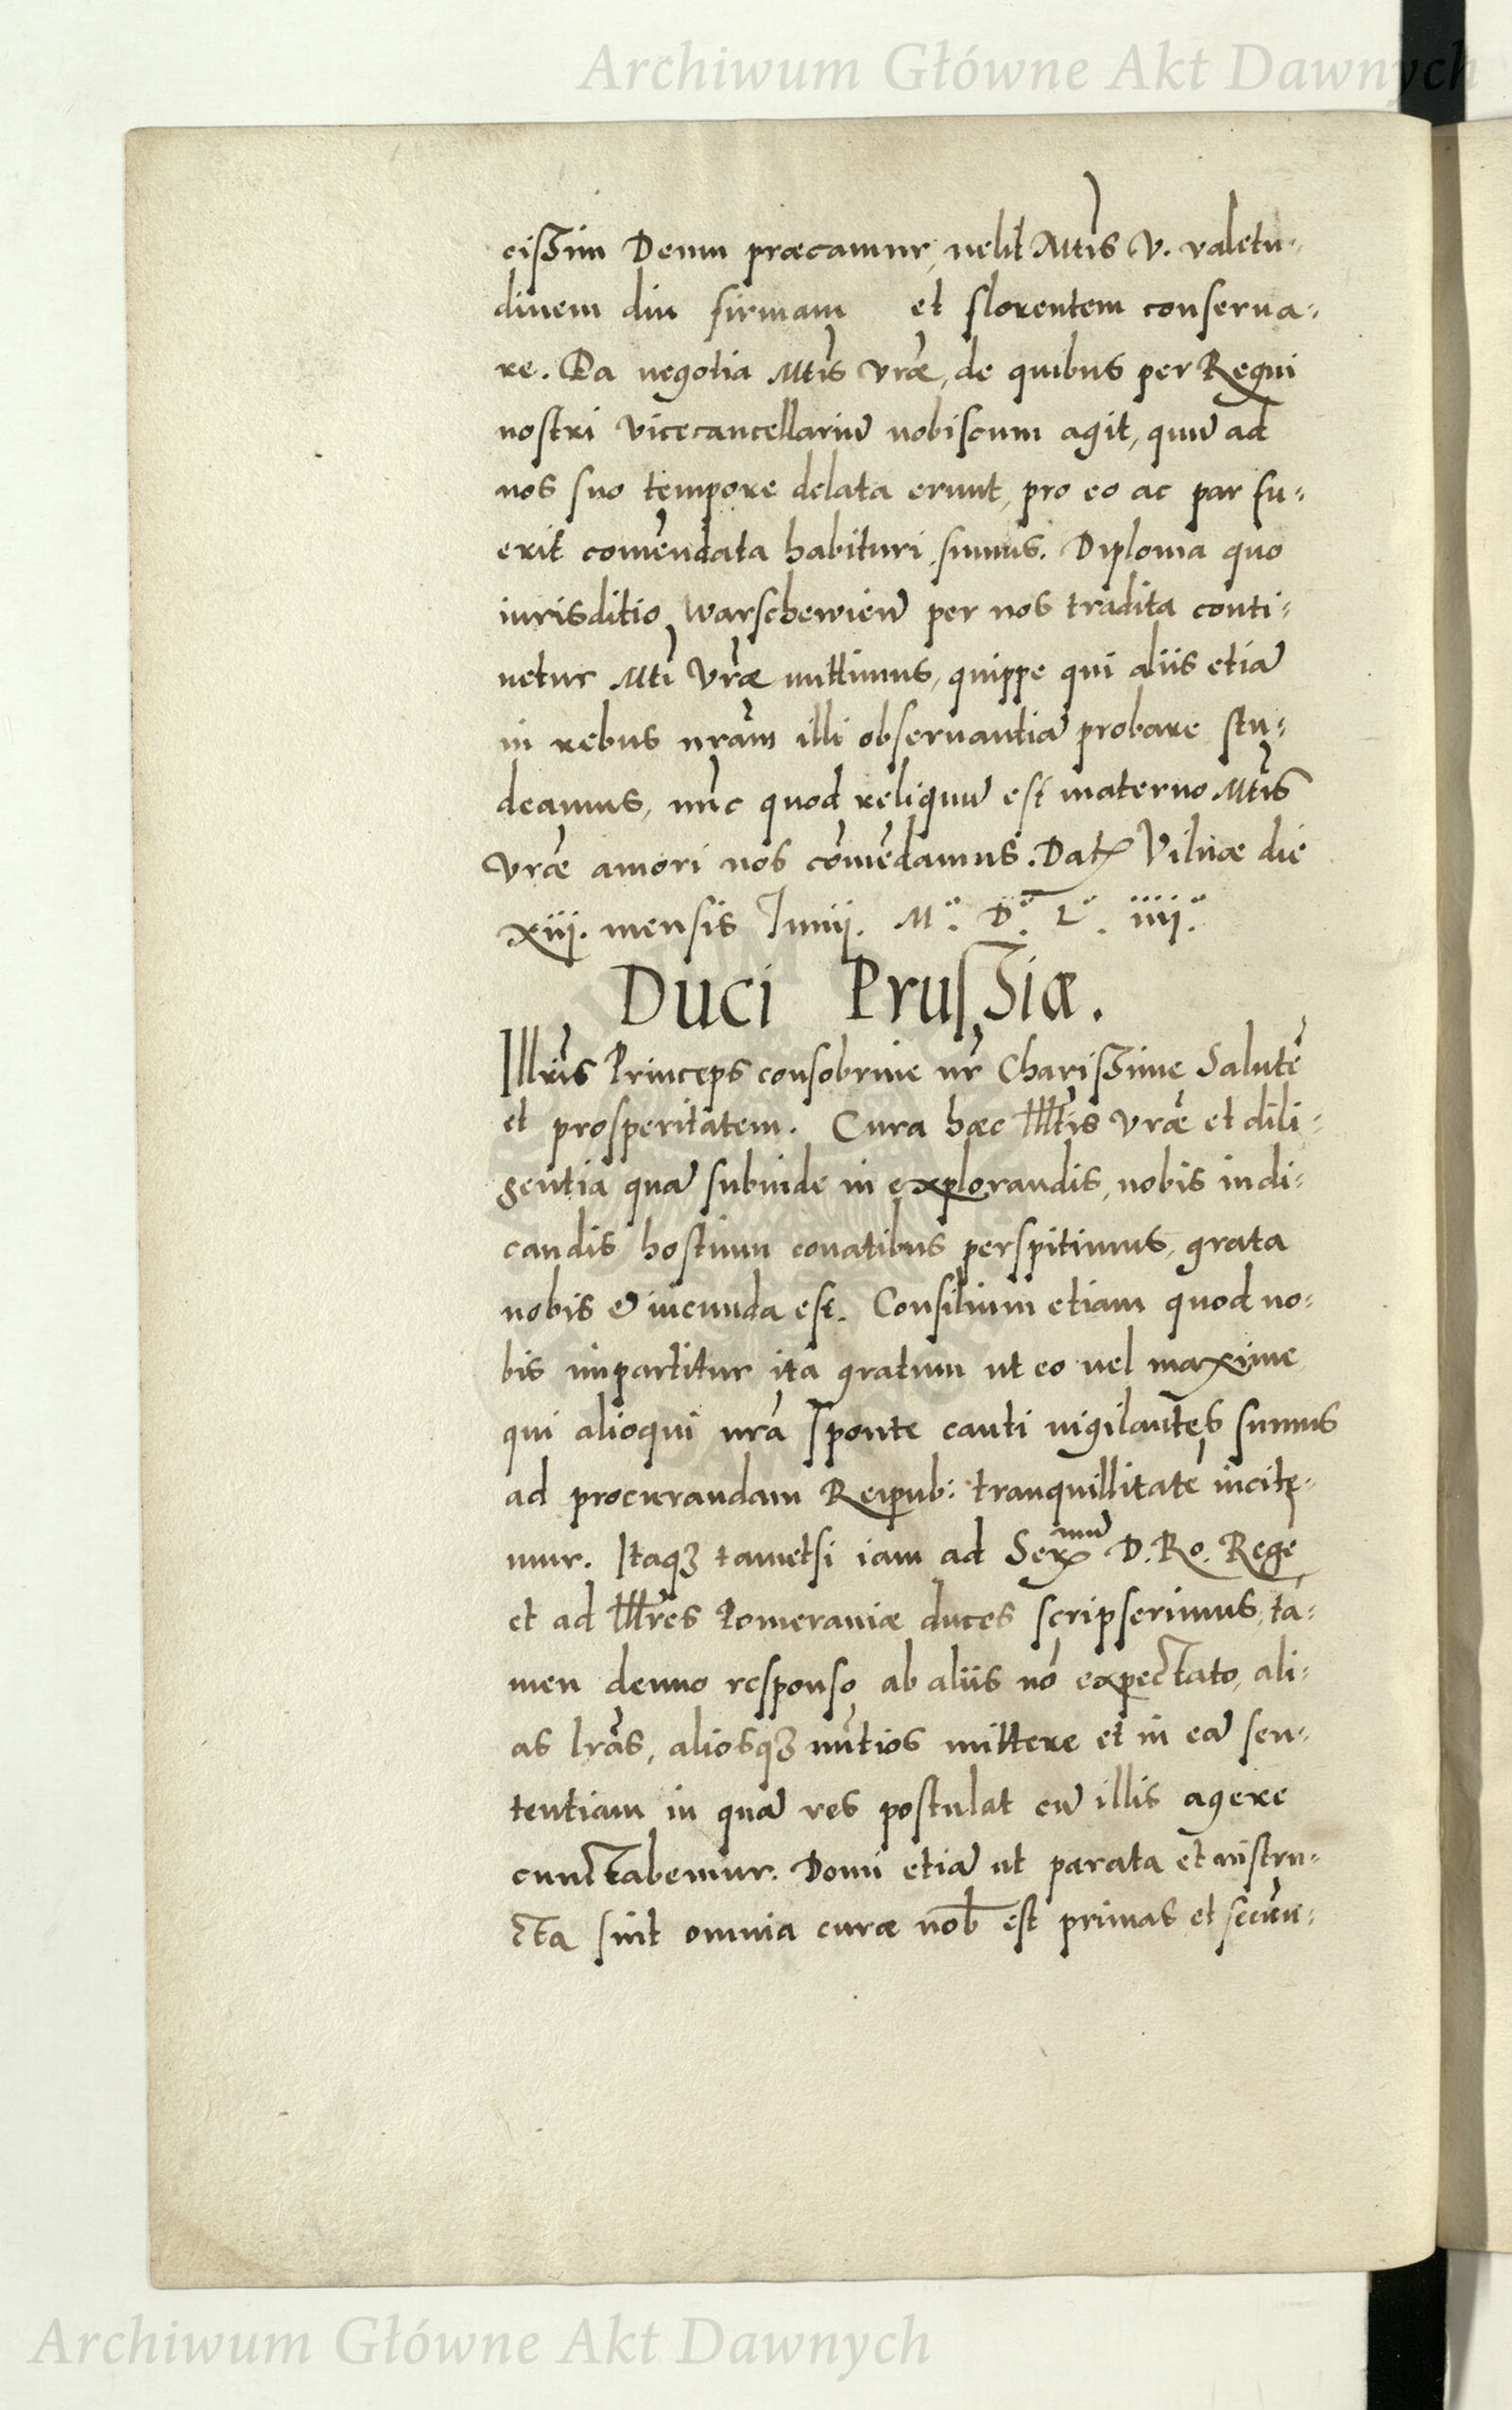 Archiwum Główne Akt Dawnych
cissim Deum præcamur, uelit Mtis V. valetu-
dinem diu firmam et florentem conserua-
re. Ea negotia Mtis Vræ, de quibus per Regni
nostri vicecancellariũ nobiscum agit, quũ ad
nos suo tempore delata erunt, pro eo ac par fu-
erit com̃endata habituri sumus. Diploma quo
iurisditio Warschewieñ per nos tradita conti-
netur Mti Vræ mittimus, quippe qui aliis etiã
in rebus nrãm illi obseruantiã probare stu-
deamus, nũc quod reliquũ est materno Mtis
Vræ amori nos com̃ẽdamus. Datꝫ Vilnæ die
xiij. mensis Junij. Mº. Dº. Lº. iiijº.
Duci Prussiæ.
Illrĩs Princeps consobrine nr̃ Charissime Salutẽ
et prosperitatem. Cura hæc Illtis Vræ et dili-
gentia quã subinde in explorandis, nobis indi-
candis hostium conatibus perspitimus, grata
nobis & iucunda est. Consilium etiam quod no-
bis impartitur ita gratum ut eo uel maxime
qui alioqui nrã sponte cauti uigilantes sumus
ad procurandam Reipub: tranquillitatẽ incite-
mur. Itaqꝫ tametsi iam ad Serẽmũ D. Ro. Regẽ
et ad Illres Pomeraniæ duces scripserimus, ta-
men denuo responso ab aliis nõ expectato, ali-
as lrãs, aliosqꝫ nũtios mittere et in eã sen-
tentiam in quã res postulat cũ illis agere
cunctabemur. Domi etiã ut parata et instru-
cta sint omnia curæ nob̃ est primas et secũn-
Archiwum Główne Akt Dawnych